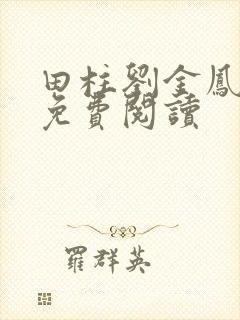 田柱劉金鳳
免費閱讀
羅群英